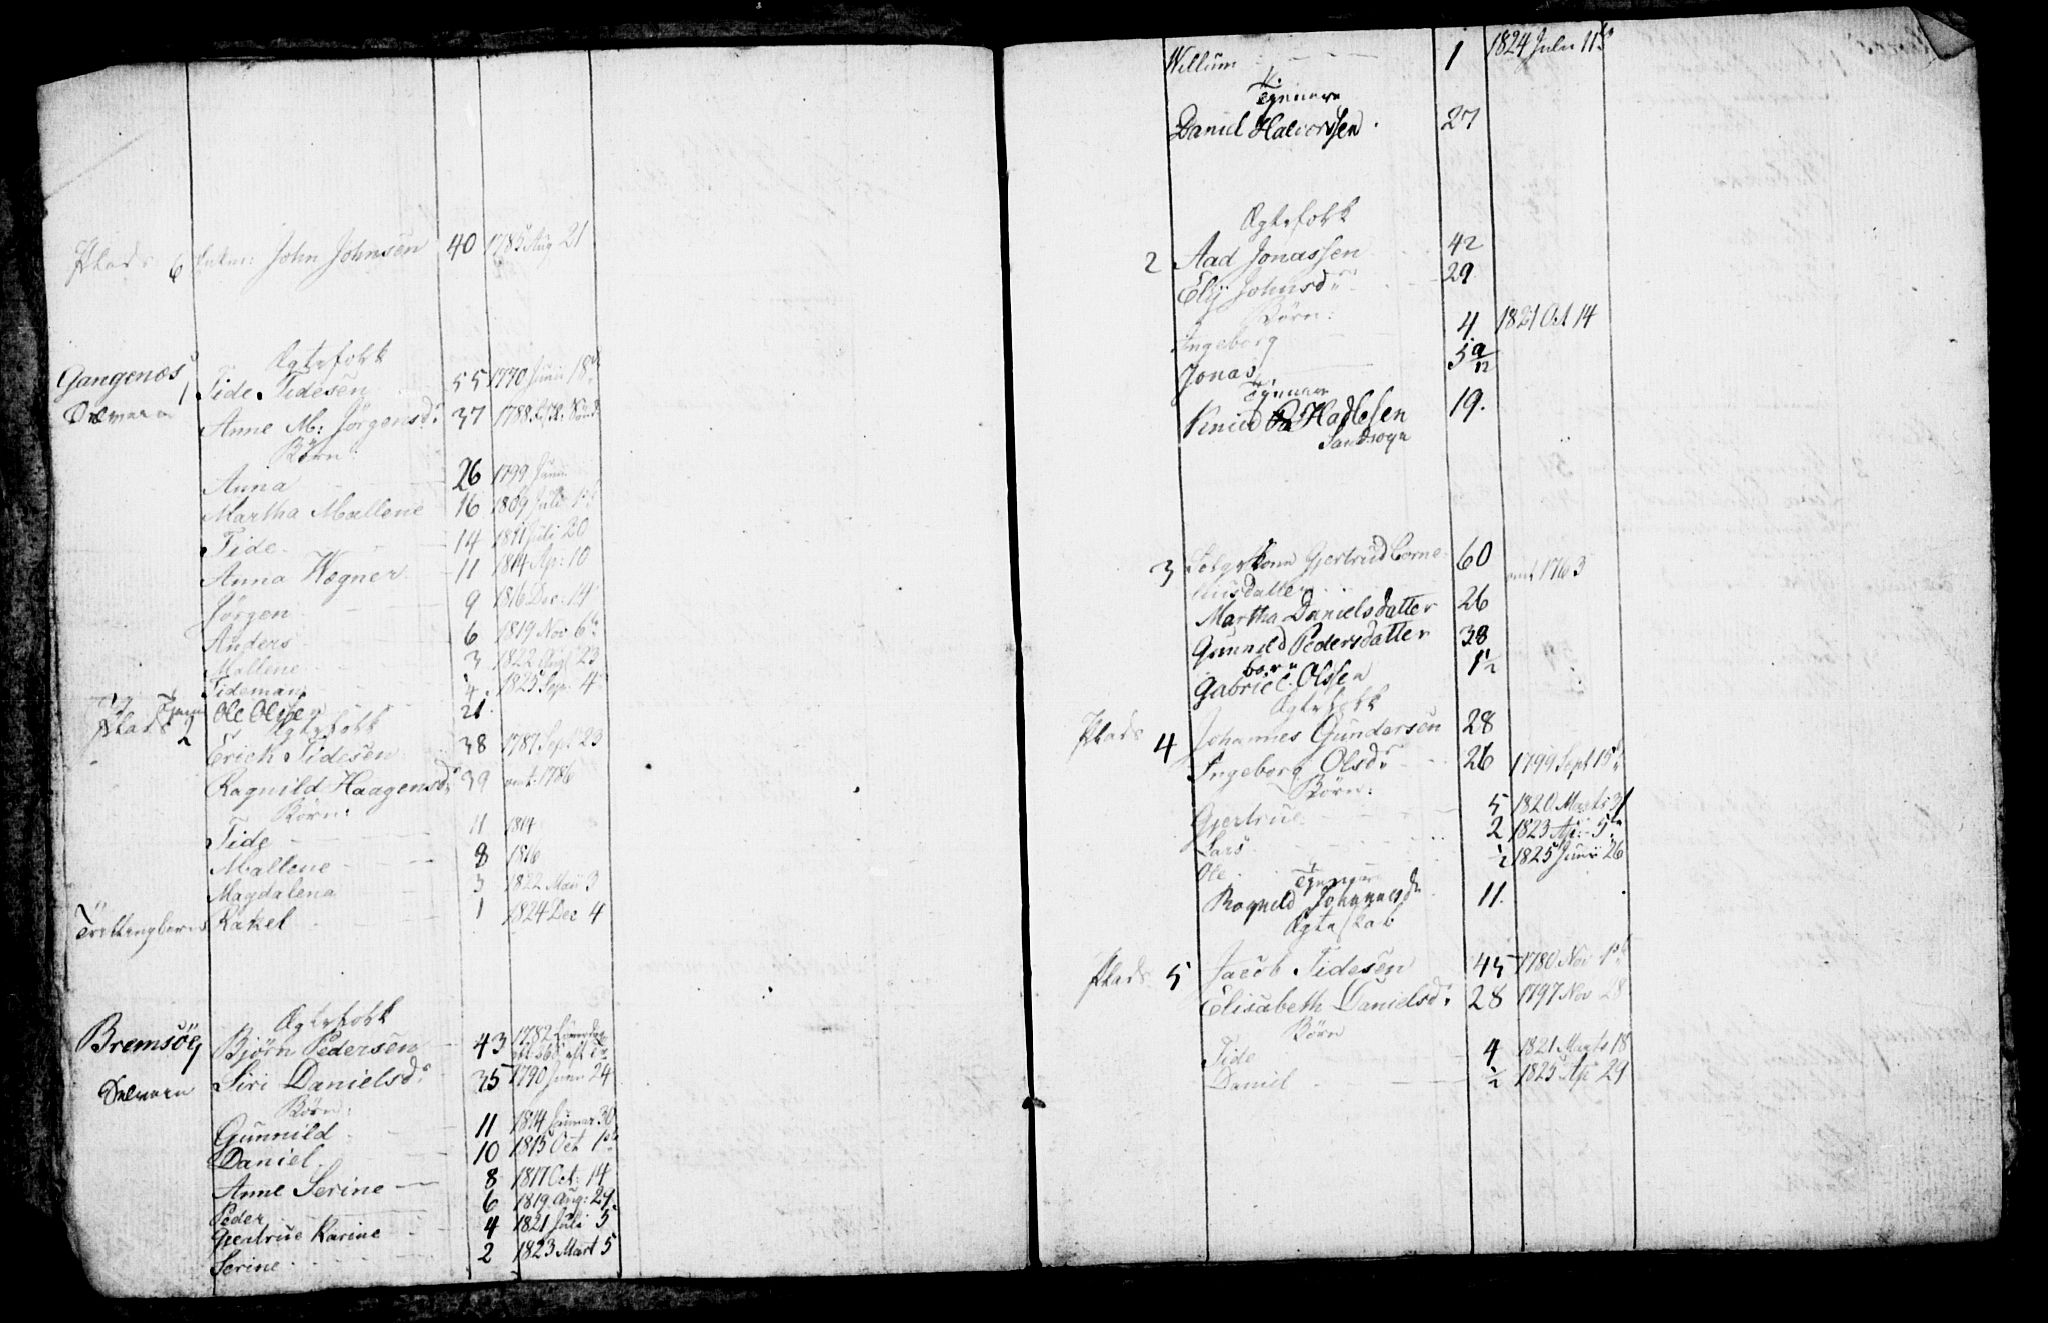 Plads 6 Enkm: John Johnsen 40 1785 Aug 21
Ægtefolk
Gangenæs 1 Tide Tidesen 55 1770 Junii 18de
Anne M: Jörgensdr 37 1788
Börn:
Anna 26 1799 Junii
Martha Mallene 16 1809 Julii 1ste
Tide 14 1811 Juli 20
Anna Wegner 11 1814 Ap: 10
Jörgen 9 1816 Dec: 14
Anders 6 1819 Nov 6te
Mallene 3 1822 Aug 23
Tideman ¼ 1825 Sep: 4
Tjen Ole Olsen 21.
Ægtefolk
Plads 2 Erick Tidesen 38 1787 Sept 23
Ragnild Haagensdr 39 omt. 1786
Börn:
Tide 11 1814
Mallene 8 1816
Magdalena 3 1822 Maii 3
Rakel 1 1824 Dec 4
Ægtefolk
Bremsöe 1 Björn Pedersen 43 1782
Siri Danielsdr 35 1790 Junii 24
Börn:
Gunnild 11 1814 Januar 30
Daniel 10 1815 Oct 1ste
Anne Serine 8 1817 Oct: 14
Peder 6 1819 Aug: 29
Gjertrue Karine 4 1821 Juli 5
Serine 2 1823 Mart 5
Willum 1 1824 Julii 11te
Tjenere
Daniel Halvorssen 27
Ægtefolk
2 Aad Jonassen 42
Elij Johnsdr 29
Börn:
Ingeborg 4 1821 Oct 14
Jonas
Tjenere
Knud Hadlesen 19.
Sandsogn
3 Gjertrud Corne 60 omt 1763
liusdatter
Martha Danielsdatter 26
Gunnild Pedersdatter 38
barn
Gabriel Olssen 1½
Ægtefolk
Plads 4 Johannes Gundersen 28
Ingeborg Olsdr 26 1799 Sept 15de
Börn:
Gjertrue 5 1820 Marts 31
Lars 2 1823 Ap: 5te
Ole ½ 1825 Junii 26
Tjener
Ragnild Johannesdr 11.
Ægteskab
Plads 5 Jacob Tidesen 45 1780 Nov 1ste
Elisabeth Danielsdr 28 1797 Nov 28
Börn
Tide 4 1821 Marts 18
Daniel ½ 1825 Ap 29